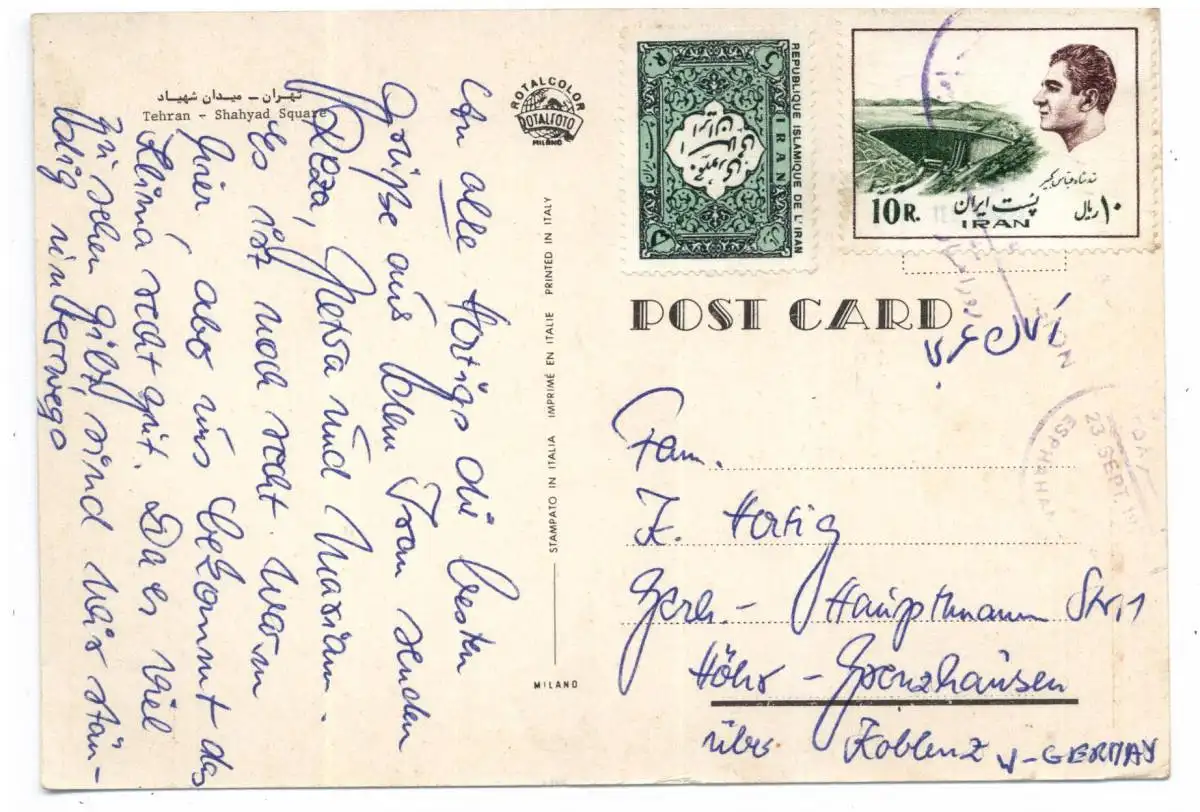 تهران – میدان شهیاد
Tehran – Shahyad Square
An alle Hertigs die besten
Grüße aus dem Iran senden
Reza, Petra und Mariam.
Es ist noch recht warm
hier, aber uns bekommt das
Klima recht gut. Da es viel
zu sehen gibt sind wir stän-
dig unterwegs
ROTALCOLOR
ROTALFOTO
MILANO
STAMPATO IN ITALIA IMPRIMÉ EN ITALIE PRINTED IN ITALY
MILANO
REPUBLIQUE ISLAMIQUE DE L'IRAN
IRAN
R.
10 R.
پست ایران
IRAN
۱۰ ریال
POST CARD
آلمان غربی
23 SEPT.
ESPHAHAN
Fam.
K. Hertig
Gerh. – Hauptmann Str. 1
Höhr – Grenzhausen
über Koblenz W-GERMANY